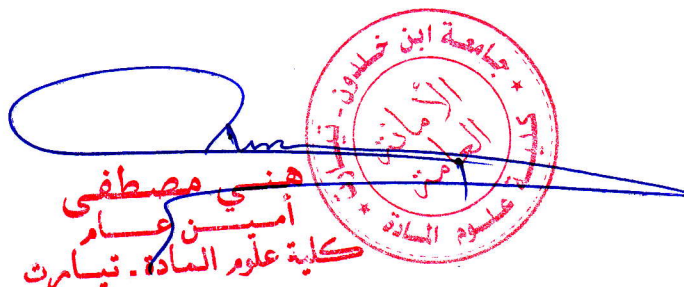 جامعة ابن خلدون - تيارت
كلية علوم المادة
الأمانة
العامة
هني مصطفى
أمين عام
كلية علوم المادة. تيارت